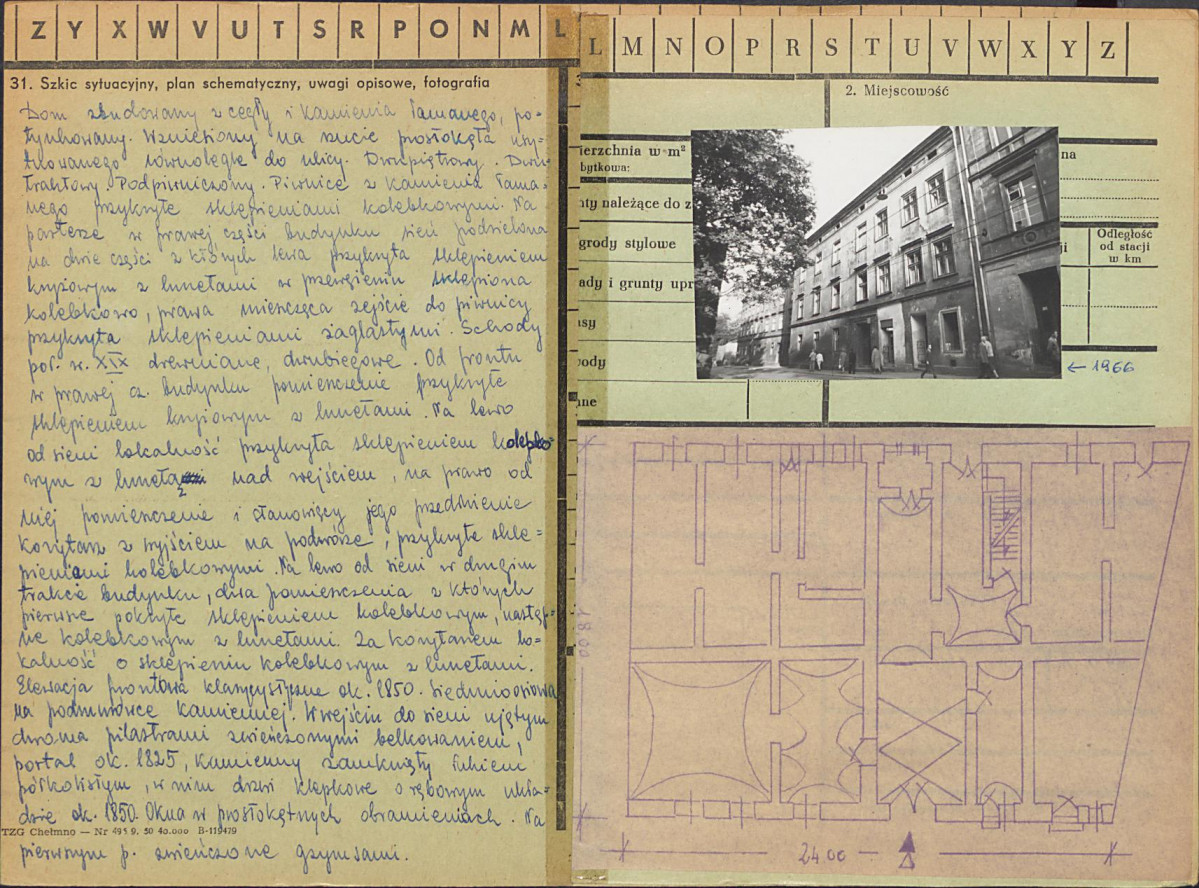 Z Y X W V U T S R P O N M L
31. Szkic sytuacyjny, plan schematyczny, uwagi opisowe, fotografia
Dom zbudowany z cegły i kamienia łamanego, po-
tynkowany. Wzniesiony na rzucie prostokąta usy-
tuowanego równolegle do ulicy. Dwupiętrowy. Dwu
traktowy. Podpiwniczony. Piwnice z kamienia łama-
nego przykryte sklepieniami kolebkowymi. Na
parterze w prawej części budynku sień podzielona
na dwie części z których lewa przykryta sklepieniem
krzyżowym z lunetami w przewężeniu sklepiona
kolebkowo, prawa mieszcząca zejście do piwnicy
przykryta sklepieniami żaglastymi. Schody
poł. w. XIX drewniane, dwubiegowe. Od frontu
w prawej cz. budynku pomieszczenie przykryte
sklepieniem krzyżowym z lunetami. Na lewo
od sieni lokalność przykryta sklepieniem kolebko-
wym z lunetą nad wejściem, na prawo od
niej pomieszczenie i stanowiący jego przedłużenie
korytarz z wyjściem na podwórze, przykryte skle=
pieniami kolebkowymi. Na lewo od sieni w drugim
trakcie budynku, dwa pomieszczenia z których
pierwsze pokryte sklepieniem kolebkowym, następ-
ne kolebkowym z lunetami. Za korytarzem lo=
kalność o sklepieniu kolebkowym z lunetami.
Elewacja frontowa klasycystyczna ok. 1850. Siedmioosiowa
na podmurówce kamiennej. W wejściu do sieni ujętym
dwoma pilastrami zwieńczonymi belkowaniem,
portal ok. 1825, kamienny zamknięty łukiem
półkolistym, w nim drzwi klepkowe o rębowym ukła-
dzie ok. 1850. Okna w prostokątnych obramieniach. Na
TZG Chełmno — Nr 495 9. 50 40.000 B-119479
pierwszym p. zwieńczone gzymsami.
L M N O P R S T U V W X Y Z
3
2. Miejscowość
ierzchnia w m²
bytkowa:
na
nty należące do z
grody stylowe
Odległość
od stacji
w km
ji
ady i grunty upr
asy
wody
← 1966
ne
1800
2400